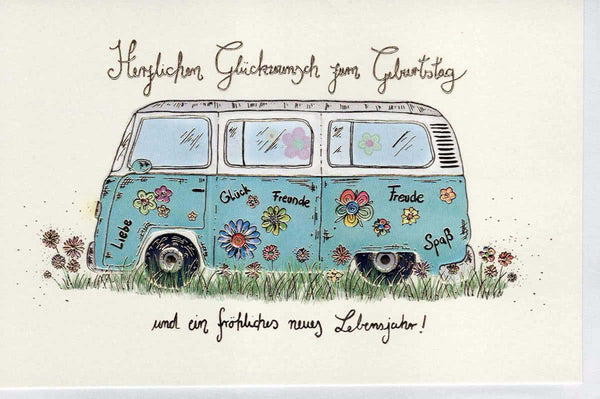 Herzlichen Glückwunsch zum Geburtstag
Glück
Freunde
Freude
Liebe
Spaß
und ein fröhliches neues Lebensjahr!